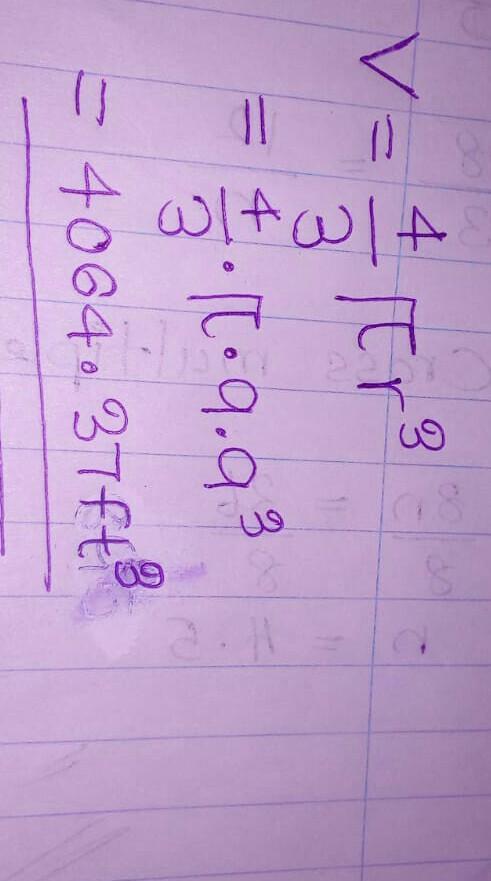 V = 4/3 π r³
= 4/3 . π . 9.9³
= 4064.37ft³